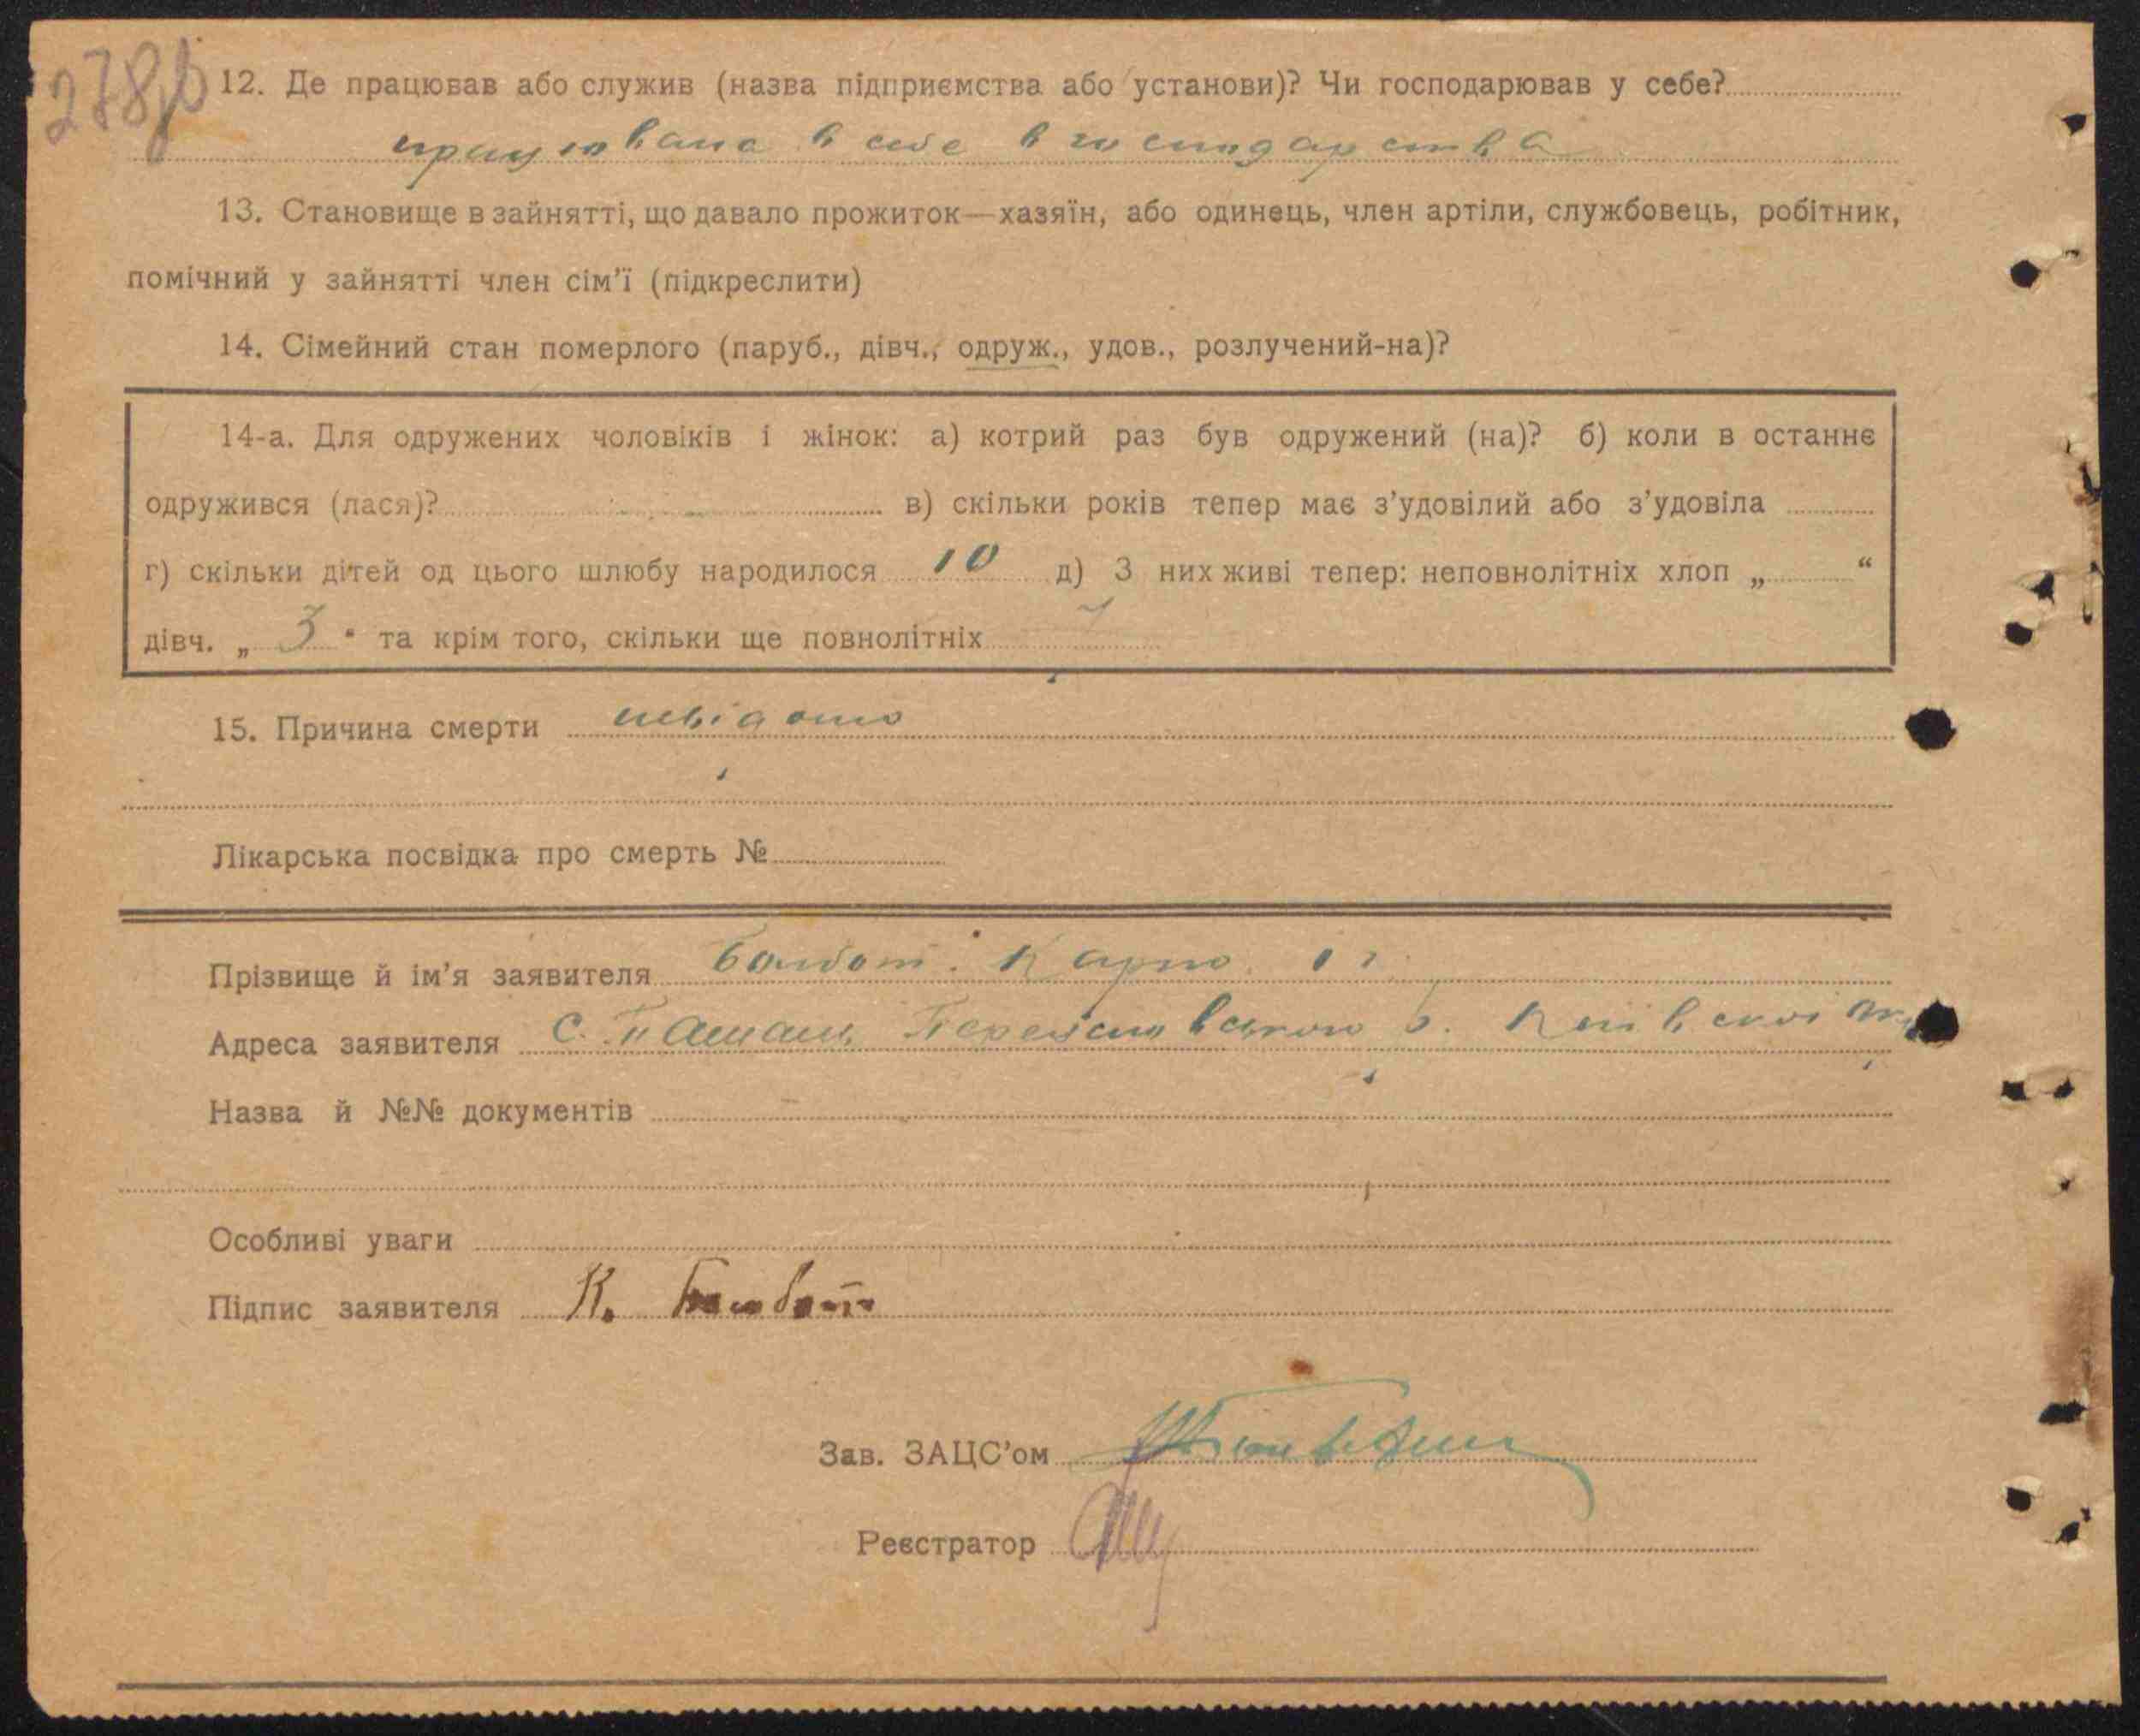 278
12. Де працював або служив (назва підприємства або установи)? Чи господарював у себе?
працювала в себе в господарстві
13. Становище в зайнятті, що давало прожиток—хазяїн, або одинець, член артіли, службовець, робітник,
помічний у зайнятті член сім'ї (підкреслити)
14. Сімейний стан померлого (паруб., дівч., одруж., удов., розлучений-на)?
14-а. Для одружених чоловіків і жінок: а) котрий раз був одружений (на)? б) коли в останнє
одружився (лася)? в) скільки років тепер має з'удовілий або з'удовіла
г) скільки дітей од цього шлюбу народилося 10 д) З них живі тепер: неповнолітніх хлоп „ “
дівч. „ 3 " та крім того, скільки ще повнолітніх
15. Причина смерти невідомо
Лікарська посвідка про смерть №
Прізвище й ім'я заявителя Карпо
Адреса заявителя с. Переяславського р. Київської
Назва й №№ документів
Особливі уваги
Підпис заявителя К.
Зав. ЗАЦС'ом
Реєстратор